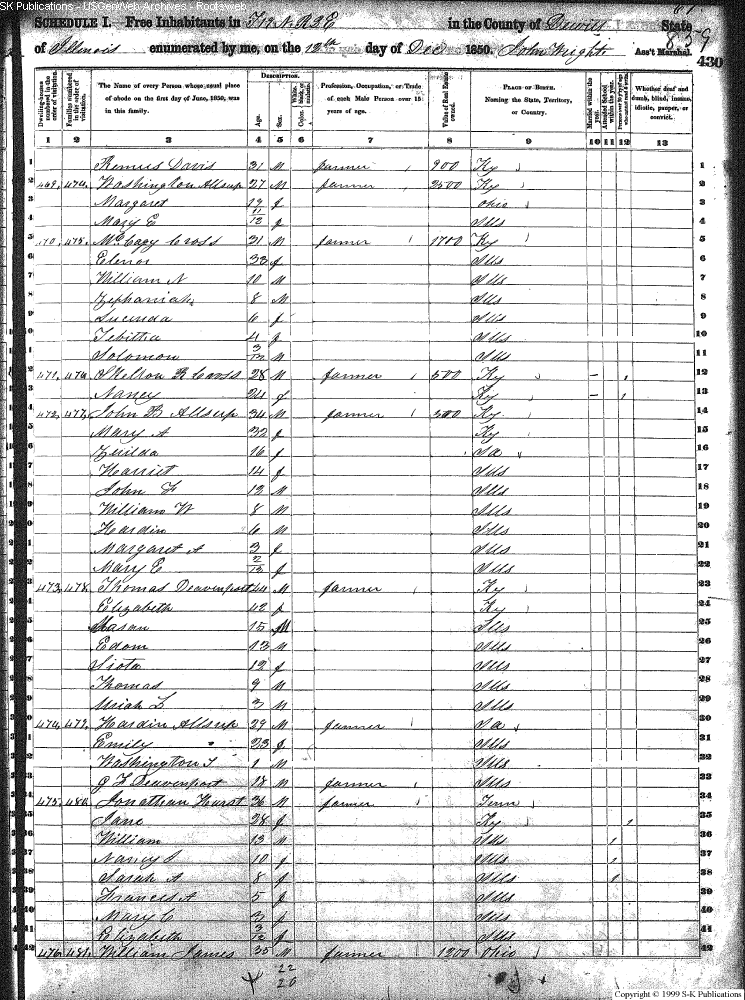 SK Publications - USGenWeb Archives - Rootsweb
SCHEDULE I. Free Inhabitants in T 19 N. R 3 E in the County of Dewitt State
of Illinois enumerated by me, on the 12th day of Dec 1850. John Wright Ass't Marshal.
859
430
Dwelling-houses numbered in the order of visitation.
Families numbered in the order of visitation.
The Name of every Person whose usual place of abode on the first day of June, 1850, was in this family.
DESCRIPTION.
Age.
Sex.
White, black, or mulatto.
Profession, Occupation, or Trade of each Male Person over 15 years of age.
Value of Real Estate owned.
PLACE OF BIRTH. Naming the State, Territory, or Country.
Married within the year.
Attended School within the year.
Persons over 20 y'rs of age who cannot read & write.
Whether deaf and dumb, blind, insane, idiotic, pauper, or convict.
1 2 3 4 5 6 7 8 9 10 11 12 13
1 Remus Davis 31 M farmer 900 Ky 1
2 469 474 Washington Allsup 27 M farmer 2500 Ky 2
3 Margaret 19 f Ohio 3
4 Mary E 11/12 f Ills 4
5 470 475 McCagy Cross 31 M farmer 1700 Ky 5
6 Elenor 33 f Ills 6
7 William N 10 M Ills 7
8 Zephaniah 8 M Ills 8
9 Lucinda 6 f Ills 9
10 Tebitha 4 f Ills 10
11 Solomon 3/12 M Ills 11
12 471 476 Shelton B Cross 28 M farmer 500 Ky 12
13 Nancy 24 f Ky 13
14 472 477 John B Allsup 34 M farmer 500 Ky 14
15 Mary A 32 f Ky 15
16 Zuilda 16 f 16
17 Harriet 14 f Ills 17
18 John F 12 M Ills 18
19 William W 8 M Ills 19
20 Hardin 6 M Ills 20
21 Margaret A 3 f Ills 21
22 Mary E 2/12 f Ills 22
23 473 478 Thomas Deavenport 44 M farmer Ky 23
24 Elizabeth 42 f Ky 24
25 Mason 15 M Ills 25
26 Edom 13 M Ills 26
27 Siota 12 f Ills 27
28 Thomas 9 M Ills 28
29 Uriah L 3 M Ills 29
30 474 479 Hardin Allsup 29 M farmer 30
31 Emily 23 f Ills 31
32 Washington T 1 M Ills 32
33 G L Deavenport 18 M farmer Ills 33
34 475 480 Jonathan Hurst 36 M farmer Tenn 34
35 Jane 28 f Ky 35
36 William 13 M Ills 36
37 Nancy J 10 f Ills 37
38 Sarah A 8 f Ills 38
39 Frances A 5 f Ills 39
40 Mary C 3 f Ills 40
41 Elizabeth 3/12 f Ills 41
42 476 481 William James 35 M farmer 1200 Ohio 42
22
20
Copyright © 1999 S-K Publications